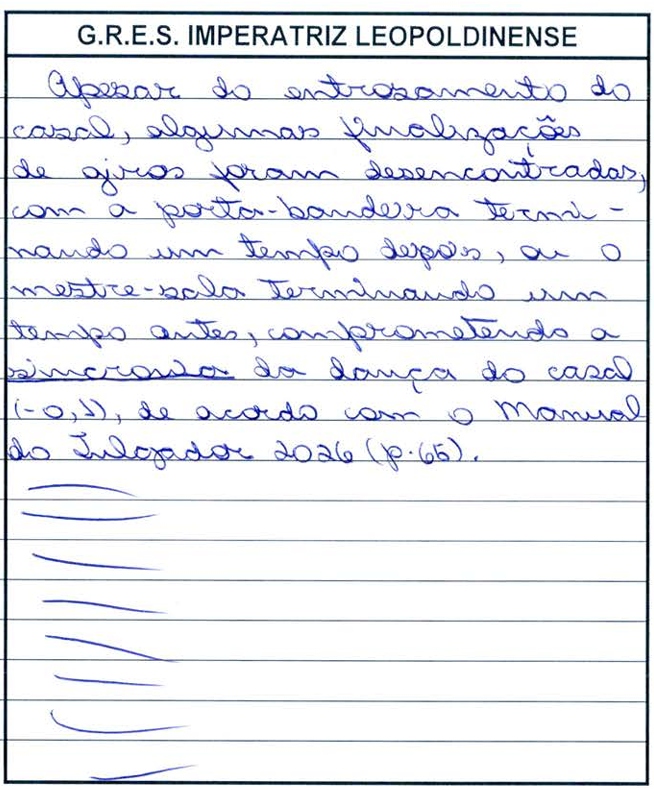 G.R.E.S. IMPERATRIZ LEOPOLDINENSE
Apesar do entrosamento do
casal, algumas finalizações
de giros foram desencontradas,
com a porta-bandeira termi-
nando um tempo depois, ou o
mestre-sala terminando um
tempo antes, comprometendo a
sincronia da dança do casal
(-0,1), de acordo com o Manual
do Julgador 2026 (p.65).